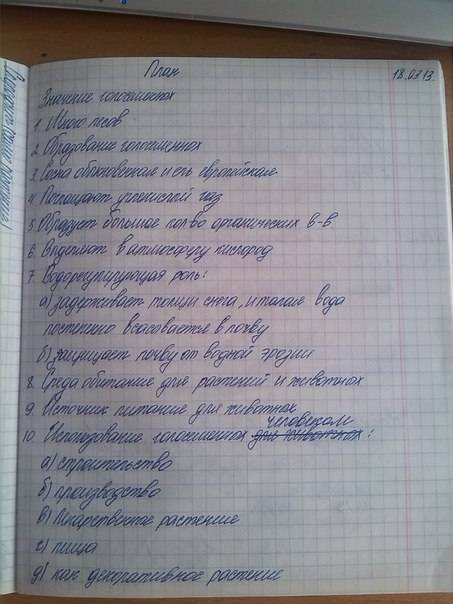 План 18.03.13
Значение голосеменных
1. Много лесов
2. Образование голосеменных
3. Сосна обыкновенная и ель европейская
4. Поглощают углекислый газ
5. Образует большое кол-во органических в-в
6. Выделяют в атмосферу кислород
7. Водорегулирующая роль:
а) задерживает толщи снега, и талая вода
постепенно всасовается в почву
б) защищает почву от водной эрозии
8. Среда обитание для растений и животных
9. Источник питание для животных
человеком
10. Использование голосеменных для животных:
а) строительство
б) производство
в) Лекарственное растение
г) пища
д) как декоративное растение